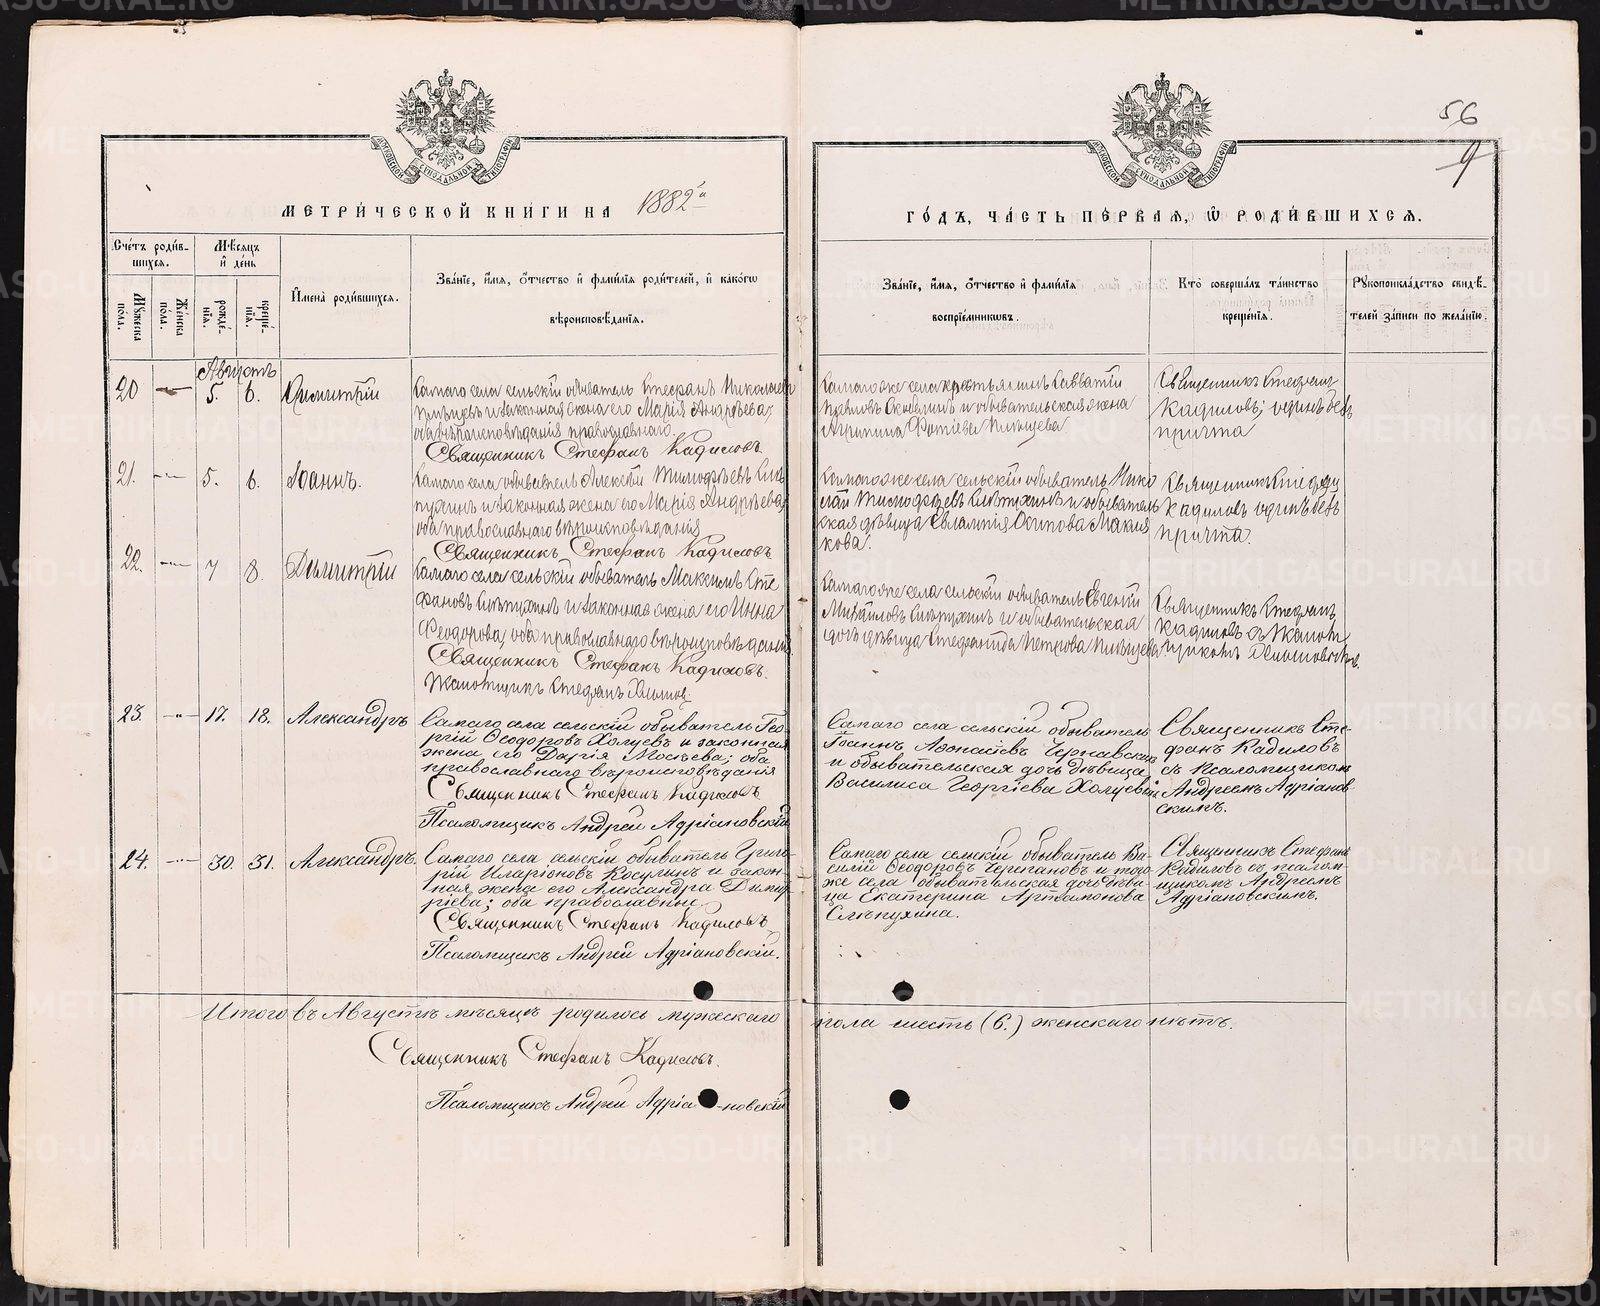 56
9
МЕТРИЧЕСКОЙ КНИГИ НА 1882й
ГОДЪ, ЧАСТЬ ПЕРВАЯ, Ѡ РОДИВШИХСЯ.
Счетъ родив-
шихся.
Мужеска пола.
Женска пола.
Мѣсяцъ и день
рожде-
нія.
креще-
нія.
Имена родившихся.
Званіе, имя, отчество и фамилія родителей, и какого
вѣроисповѣданія.
Званіе, имя, отчество и фамилія
воспріемниковъ.
Кто совершалъ таинство
крещенія.
Рукоприкладство свидѣ-
телей записи по желанію.
Августъ
20 — 5. 6. Димитрій
Самаго села сельскій обыватель Стефанъ Николаевъ
и законная жена его Марія Андрѣева,
оба вѣроисповѣданія православнаго.
Священникъ Стефанъ Кадиловъ
Самаго же села крестьянинъ Савватій
и обывательская жена
Агрипина Фотіева
Священникъ Стефанъ
Кадиловъ, одинъ безъ
причта
21. — 5. 6. Іоаннъ.
Самаго села обыватель Алексій Тимофѣевъ Слѣ-
пухинъ и законная жена его Марія Андрѣева,
оба православнаго вѣроисповѣданія
Священникъ Стефанъ Кадиловъ
Самаго же села сельскій обыватель Нико
лай Тимофѣевъ Слѣпухинъ и обыватель
ская дѣвица Евлампія Осипова Макия
кова.
Священникъ Стефанъ
Кадиловъ одинъ безъ
причта.
22. — 7 8. Димитрій
Самаго села сельскій обыватель Максимъ Сте
фановъ Слѣпухинъ и законная жена его Инна
Феодорова, оба православнаго вѣроисповѣданія
Священникъ Стефанъ Кадиловъ.
Псаломщикъ Стефанъ
Самаго же села сельскій обыватель Евгеній
Михайловъ Слѣпухинъ и обывательская
дочь дѣвица Стефанида Петрова
Священникъ Стефанъ
Кадиловъ съ Псалом
щикомъ
23. — 17. 18. Александръ
Самаго села сельскій обыватель Гео
ргій Ѳеодоровъ Холуевъ и законная
жена его Дарія Мосѣева; оба
православнаго вѣроисповѣданія
Священникъ Стефанъ Кадиловъ
Псаломщикъ Андрей Адріановскій
Самаго села сельскій обыватель
Іоаннъ Аѳонасіевъ Чернавскихъ
и обывательская дочь дѣвица
Василиса Георгіева Холуева
Священникъ Сте-
фанъ Кадиловъ
съ Псаломщикомъ
Андреемъ Адріанов
скимъ.
24. — 30. 31. Александръ.
Самаго села сельскій обыватель Григо-
рій Иларіоновъ Косулинъ и закон-
ная жена его Александра Димит
ріева; оба православные.
Священникъ Стефанъ Кадиловъ
Псаломщикъ Андрей Адріановскій.
Самаго села сельскій обыватель Ва-
силій Ѳеодоровъ Черепановъ и того
же села обывательская дочь дѣви-
ца Екатерина Артамонова
Слѣпухина.
Священникъ Стефанъ
Кадиловъ съ псалом-
щикомъ Андреемъ
Адріановскимъ.
Итого въ Августѣ мѣсяцѣ родилось мужескаго пола шесть (6.) женскаго нѣтъ.
Священникъ Стефанъ Кадиловъ.
Псаломщикъ Андрей Адріановскій
METRIKI.GASO-URAL.RU